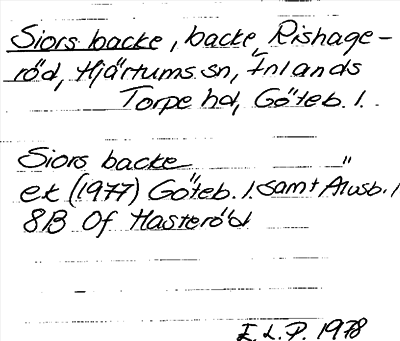 Siors backe, backe, Rishage-
röd, Hjärtums sn, Inlands
Torpe hd, Göteb. l.
Siors backe "
ek (1977) Göteb. l. samt Älvsb. l
8B 0f Hasteröd
E. L. P. 1978